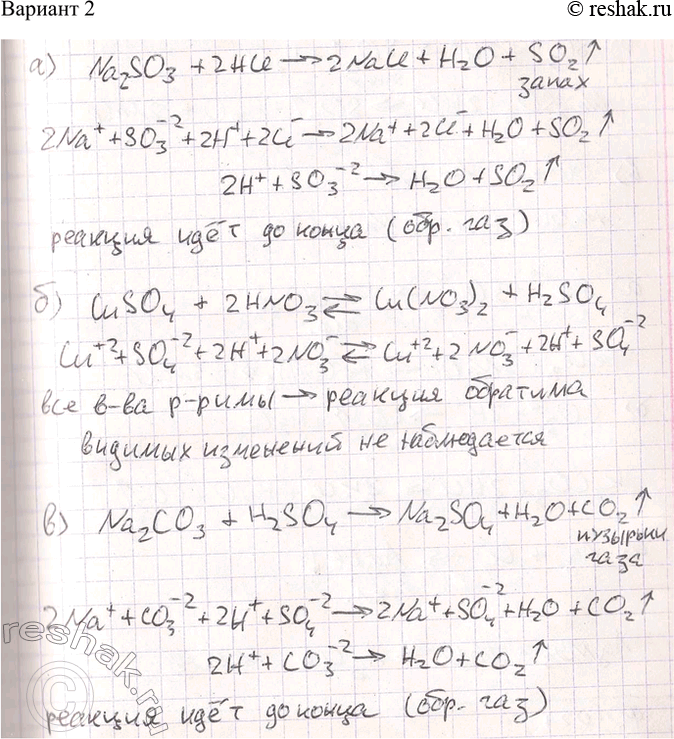 Вариант 2
© reshak.ru
а) Na₂SO₃ + 2HCl → 2NaCl + H₂O + SO₂↑
запах
2Na⁺ + SO₃⁻² + 2H⁺ + 2Cl⁻ → 2Na⁺ + 2Cl⁻ + H₂O + SO₂↑
2H⁺ + SO₃⁻² → H₂O + SO₂↑
реакция идёт до конца (обр. газ)
б) CuSO₄ + 2HNO₃ ⇄ Cu(NO₃)₂ + H₂SO₄
Cu⁺² + SO₄⁻² + 2H⁺ + 2NO₃⁻ ⇄ Cu⁺² + 2NO₃⁻ + 2H⁺ + SO₄⁻²
все в-ва р-римы → реакция обратима
видимых изменений не наблюдается
в) Na₂CO₃ + H₂SO₄ → Na₂SO₄ + H₂O + CO₂↑
пузырьки
газа
2Na⁺ + CO₃⁻² + 2H⁺ + SO₄⁻² → 2Na⁺ + SO₄⁻² + H₂O + CO₂↑
2H⁺ + CO₃⁻² → H₂O + CO₂↑
реакция идёт до конца (обр. газ)
reshak.ru